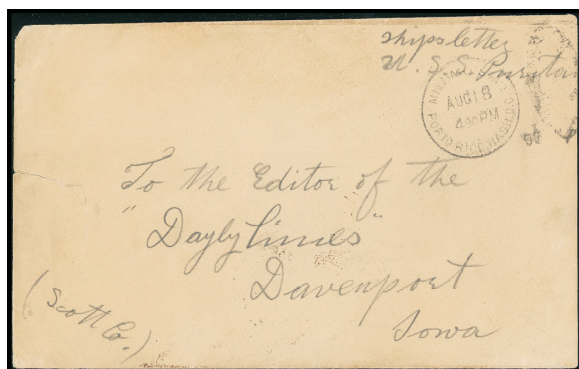 Ships letter
U. S. S. Puritan
AUG 18
4 PM
PORTO RICO
To the Editor of the
"Dayly Times"
Davenport
Iowa
(Scott Co.)